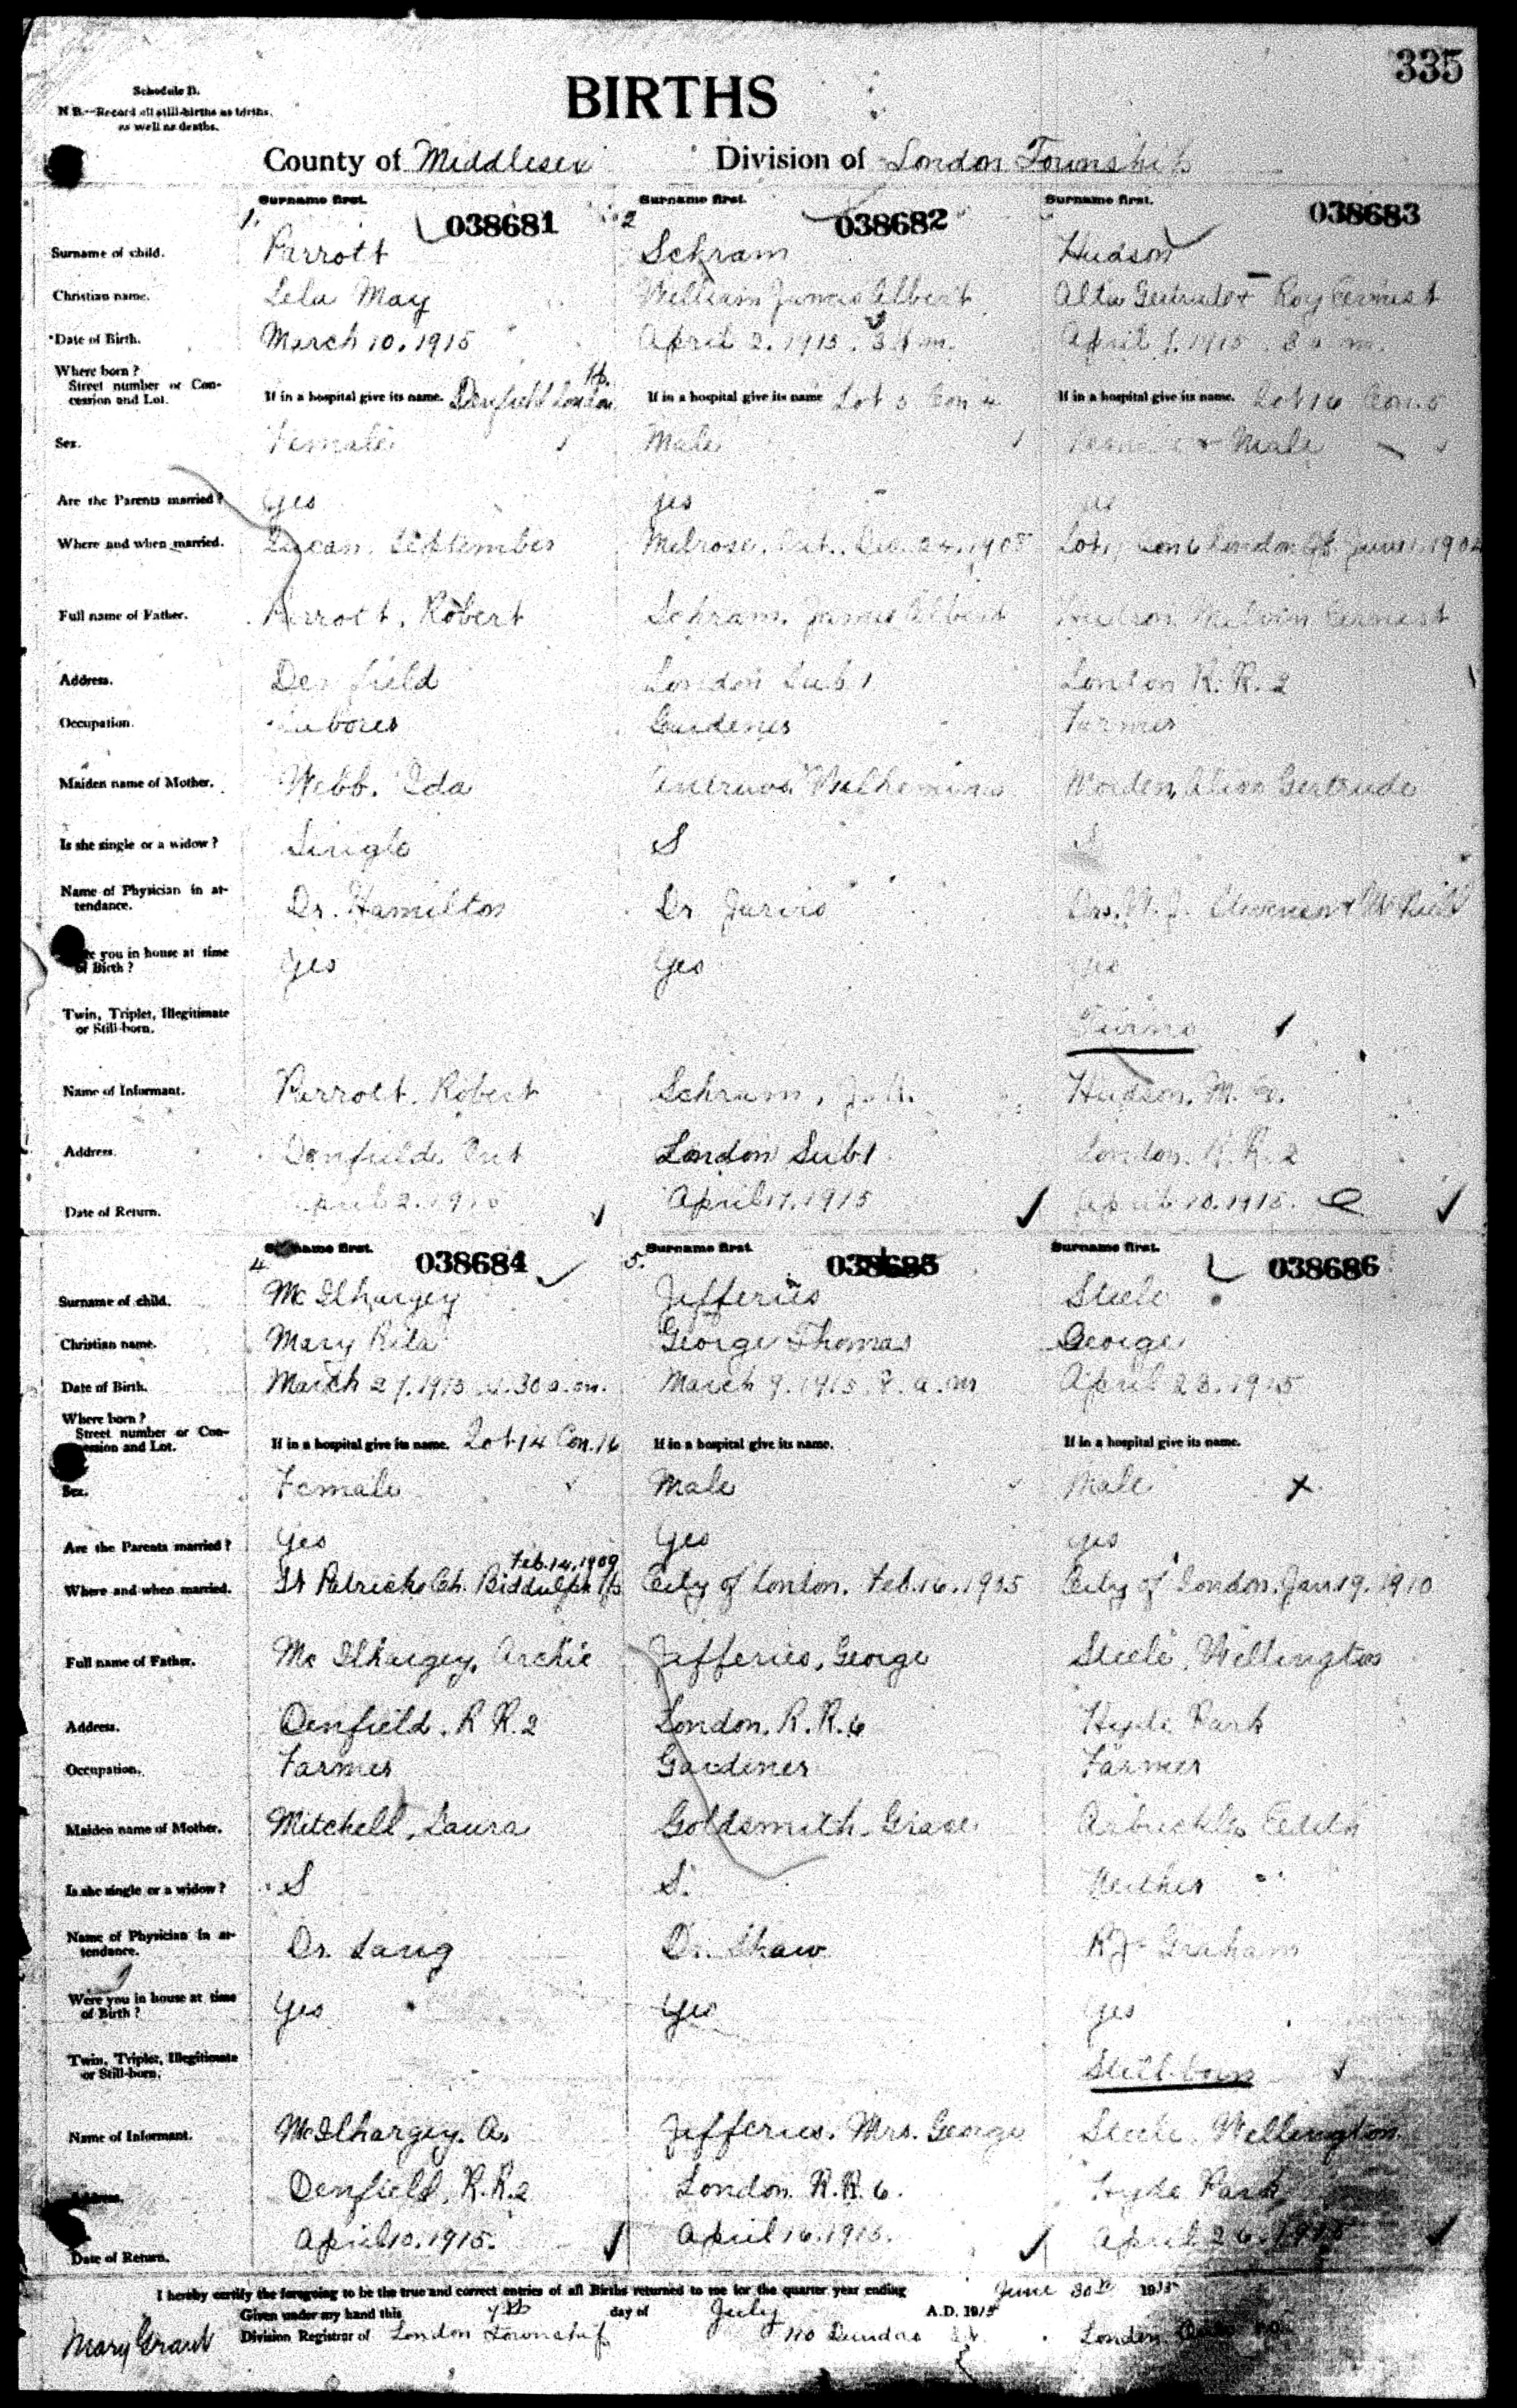 335
Schedule D.
N B.—Record all still-births as births,
as well as deaths.
BIRTHS
County of Middlesex Division of London Township
Surname first. Surname first. Surname first.
1. 038681 2 038682 038683
Surname of child. Parrott Schram Hudson
Christian name. Lela May William James Albert Alta Gertrude + Roy Ernest
Date of Birth. March 10. 1915 April 2. 1915. April 1. 1915. 8 a.m.
Where born?
Street number or Concession and Lot. If in a hospital give its name. Denfield London Tp. If in a hospital give its name Lot 5 Con 4 If in a hospital give its name. Lot 16 Con. 5
Sex. Female Male Female + Male
Are the Parents married? Yes yes yes
Where and when married. Lucan. September Melrose. Ont. Dec. 24. 1908 Lot Con 6 London Tp. June 1. 1904
Full name of Father. Parrott. Robert Schram. James Albert Hudson Melvin Ernest
Address. Denfield London Sub 1 London R. R. 2
Occupation. Laborer Gardener Farmer
Maiden name of Mother. Webb. Ida Wilhemina Worden, Gertrude
Is she single or a widow? Single S S
Name of Physician in attendance. Dr. Hamilton Dr Jarvis Drs.
Were you in house at time of Birth? Yes Yes Yes
Twin, Triplet, Illegitimate or Still-born. Twins
Name of Informant. Parrott. Robert Schram, J. A. Hudson. M. E.
Address. Denfield. Ont London Sub 1 London. R. R. 2
Date of Return. April 2. 1915 April 17. 1915 April 10. 1915.
Surname first. Surname first. Surname first.
4 038684 5. 038685 038686
Surname of child. McIlhargey Jefferies Steele
Christian name. Mary Rita George Thomas George
Date of Birth. March 27. 1915 .30 a.m. March 9. 1915 a.m April 23. 1915
Where born?
Street number or Concession and Lot. If in a hospital give its name. Lot 14 Con. 16 If in a hospital give its name. If in a hospital give its name.
Sex. Female Male Male x
Are the Parents married? Yes Yes yes
Feb. 14. 1909
Where and when married. St Patricks Ch. Biddulph Tp City of London. Feb. 16. 1905 City of London. Jan 19. 1910
Full name of Father. McIlhargey, Archie Jefferies, George Steele, Wellington
Address. Denfield. R R. 2 London. R. R. 6 Hyde Park
Occupation. Farmer Gardener Farmer
Maiden name of Mother. Mitchell, Laura Goldsmith, Grace Arbuckle, Edith
Is she single or a widow? S S. Neither
Name of Physician in attendance. Dr. Lang Dr. Shaw R J. Graham
Were you in house at time of Birth? Yes Yes Yes
Twin, Triplet, Illegitimate or Still-born. Still-born
Name of Informant. McIlhargey. A. Jefferies. Mrs. George Steele, Wellington
Address. Denfield, R.R. 2 London R.R. 6. Hyde Park
Date of Return. April 10. 1915. April 16. 1915. April 26. 1915
I hereby certify the foregoing to be the true and correct entries of all Births returned to me for the quarter year ending June 30th 1915
Given under my hand this 7th day of July A.D. 1915
Mary Grant Division Registrar of London Township 110 Dundas St. London